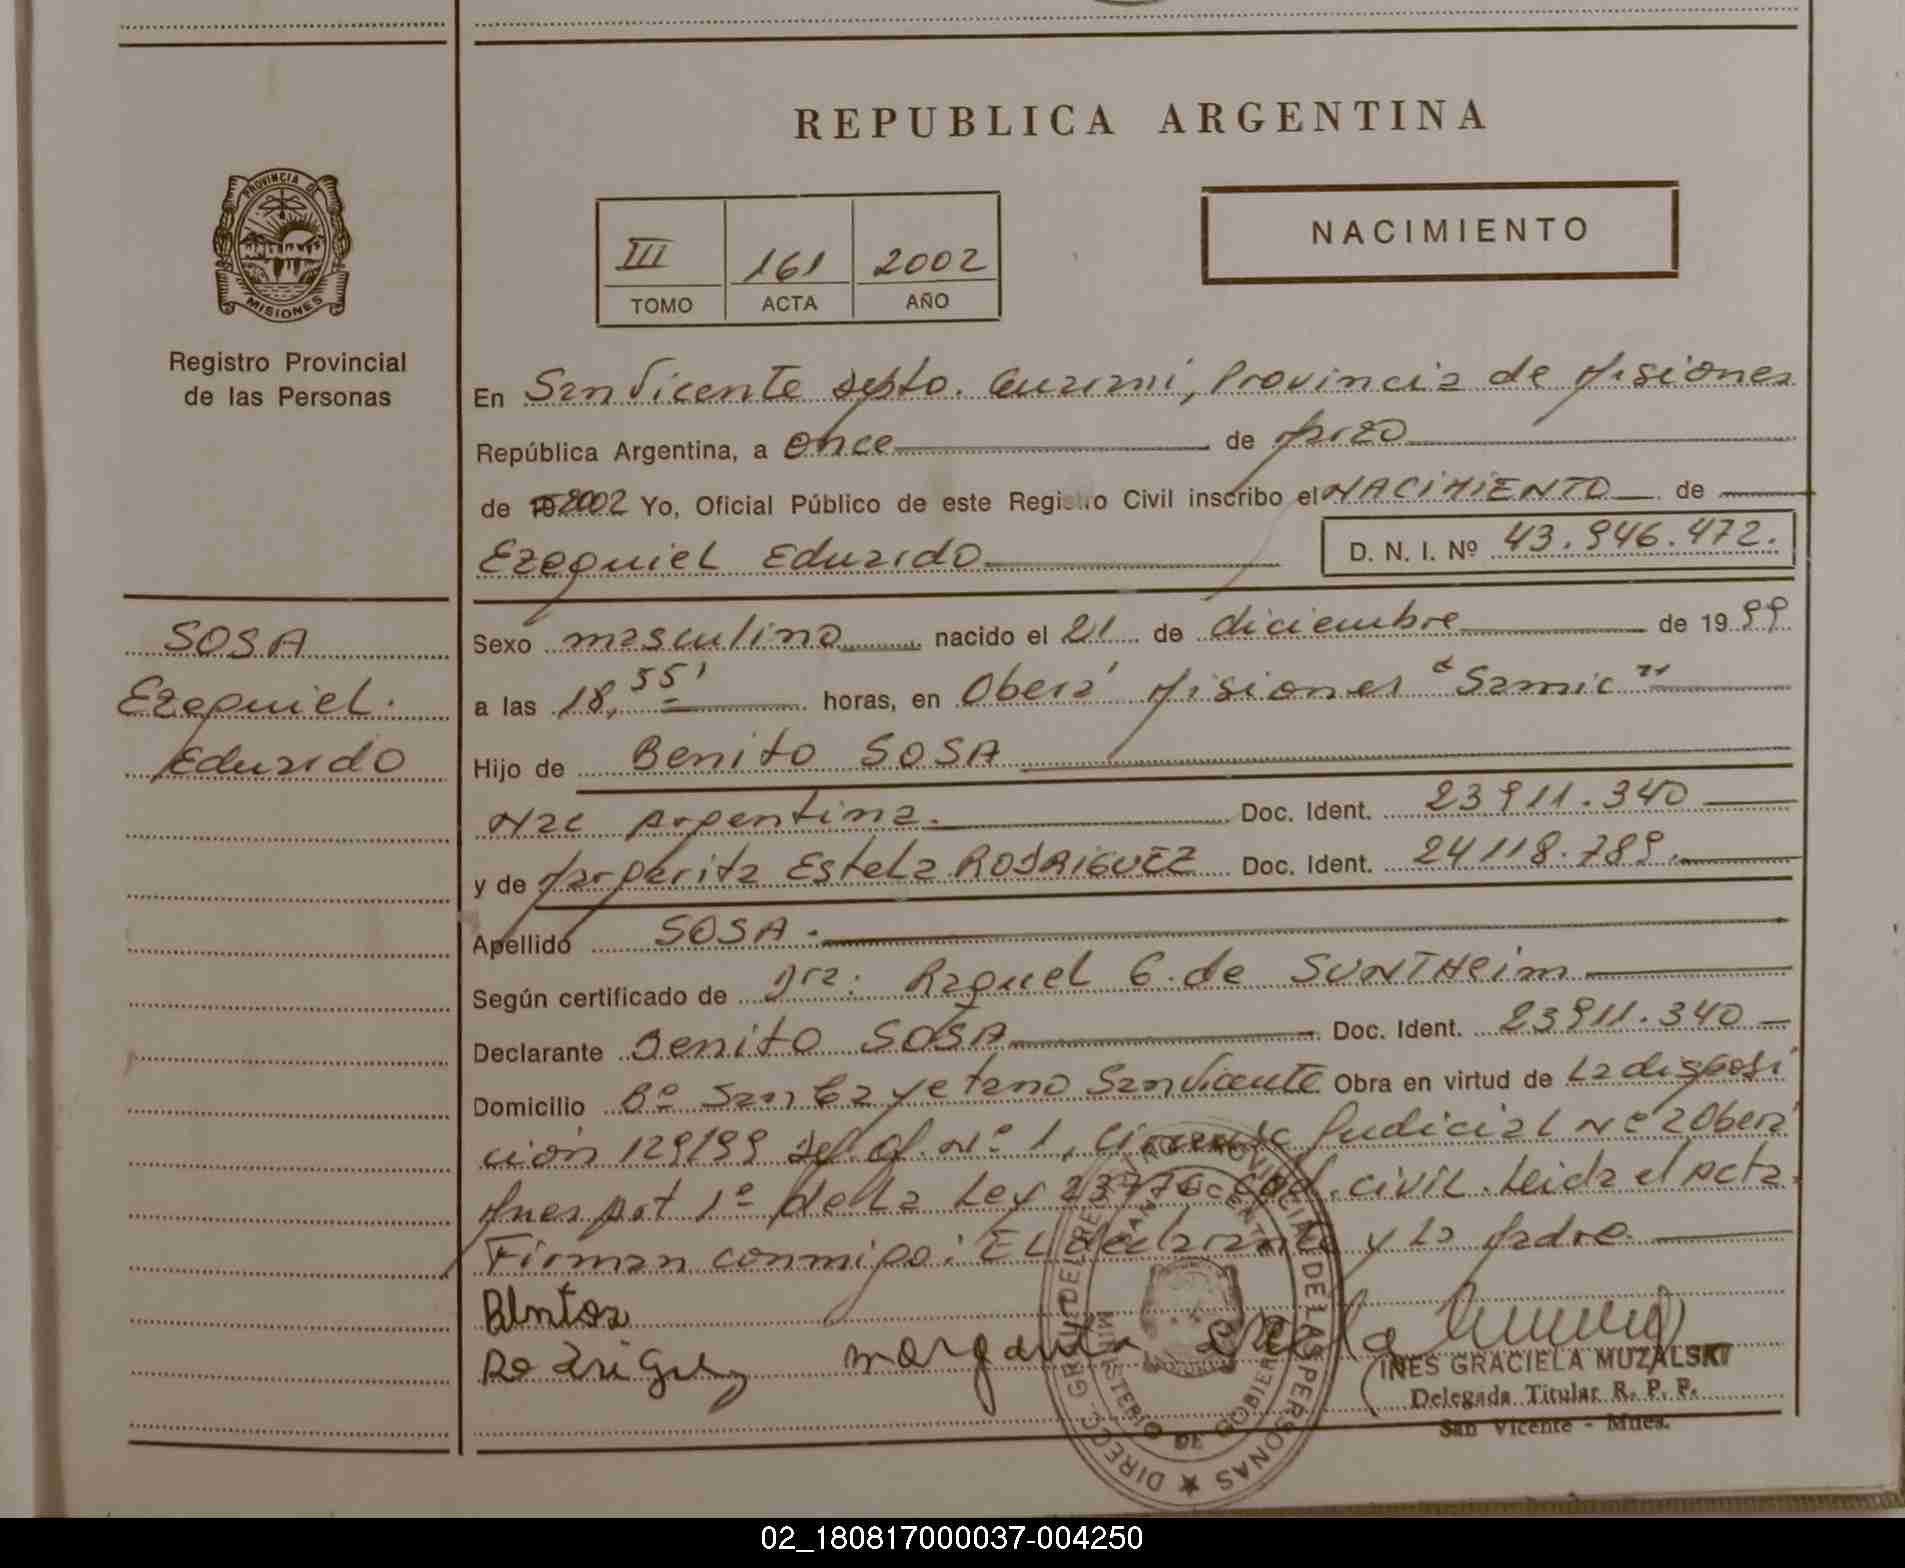 REPUBLICA ARGENTINA
PROVINCIA DE
MISIONES
Registro Provincial
de las Personas
III 161 2002
TOMO ACTA AÑO
NACIMIENTO
En San Vicente Depto. Guarani, Provincia de Misiones
República Argentina, a once de Marzo
de 2002 Yo, Oficial Público de este Registro Civil inscribo el NACIMIENTO de
Ezequiel Eduardo
D. N. I. Nº 43.946.472.
SOSA
Ezequiel.
Eduardo
Sexo masculino nacido el 21 de diciembre de 1999
a las 18,55' horas, en Oberá Misiones "Samic"
Hijo de Benito SOSA
Nac Argentina. Doc. Ident. 23911.340
y de Margarita Estela RODRIGUEZ Doc. Ident. 24118.789.
Apellido SOSA.
Según certificado de Dra: Raquel G. de SUNTHeim
Declarante Benito SOSA Doc. Ident. 23911.340
Domicilio Bº San Cayetano San Vicente Obra en virtud de La disposi
ción 129/99 Def. Of. Nº 1, Circunsc Judicial Nº 2 Oberá
Mnes Art 1º de La Ley 23776 Cod. Civil. Leida el Acta.
Firman conmigo: EL declarante y La Madre.
Rodriguez Margarita Estela
INES GRACIELA MUZALSKI
Delegada Titular R. P. P.
San Vicente - Mnes.
DIRECC. GRAL. DEL REGISTRO PROVINCIAL DE LAS PERSONAS
MINISTERIO DE GOBIERNO
SAN VICENTE
02_180817000037-004250